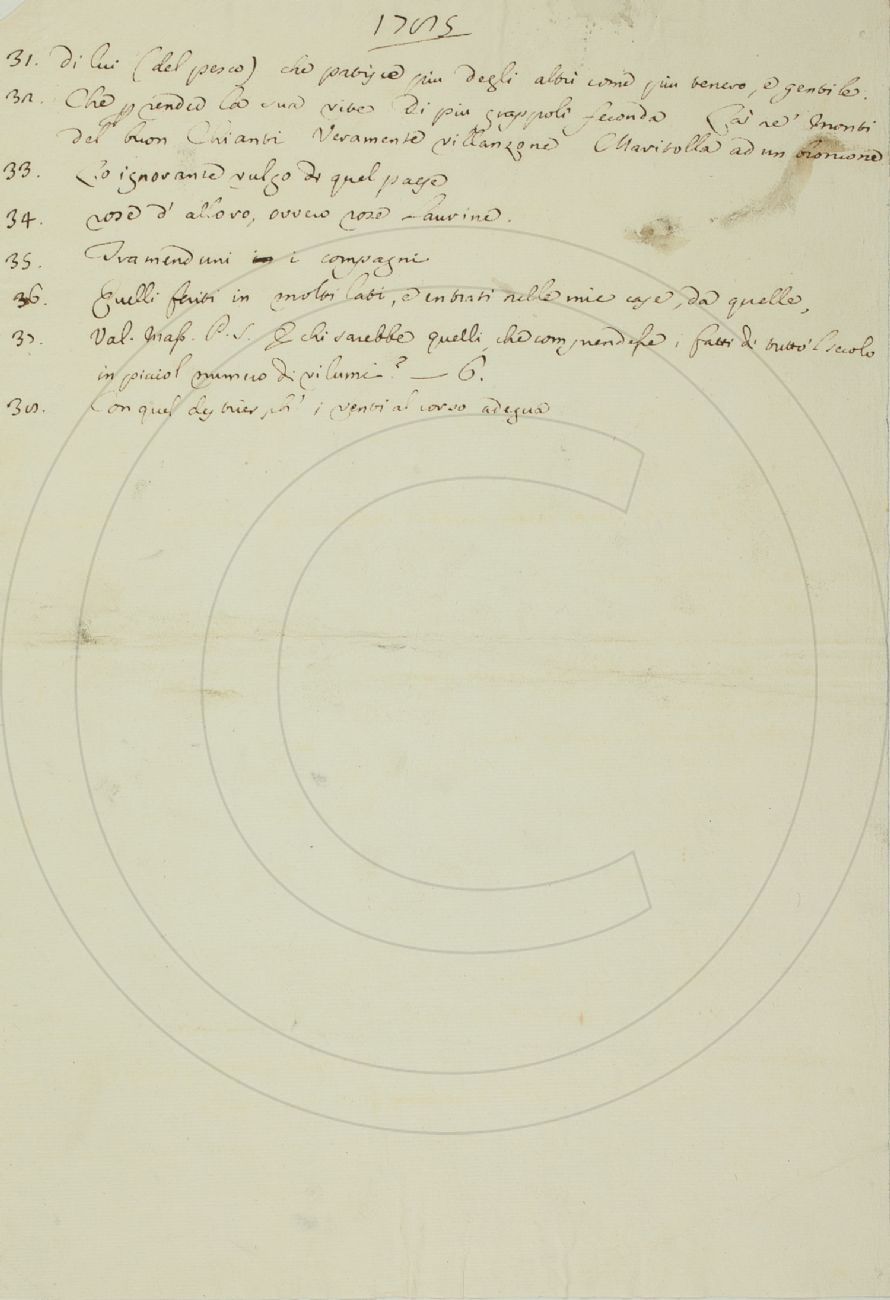 1785
31. Di lui (del pesco) che patisce piu degli altri come piu tenero, e gentile.
32. Che prende la sua vite di piu grappoli feconda Là ne' monti
del buon Chianti Veramente villanzone Maritolla ad un broncone
33. Lo ignorante vulgo di quel paese
34. rose d' alloro, ovvero rose laurine.
35. Tramenduni i compagni
36. Quelli feriti in molti lati, e entrati nelle mie case, da quelle,
37. Val. Mass. P. S. E chi sarebbe quelli, che comprendesse i fatti di tutto 'l secolo
in picciol numero di vilumi? — 6.
38. Con quel destrier, ch' i venti al corso adegua